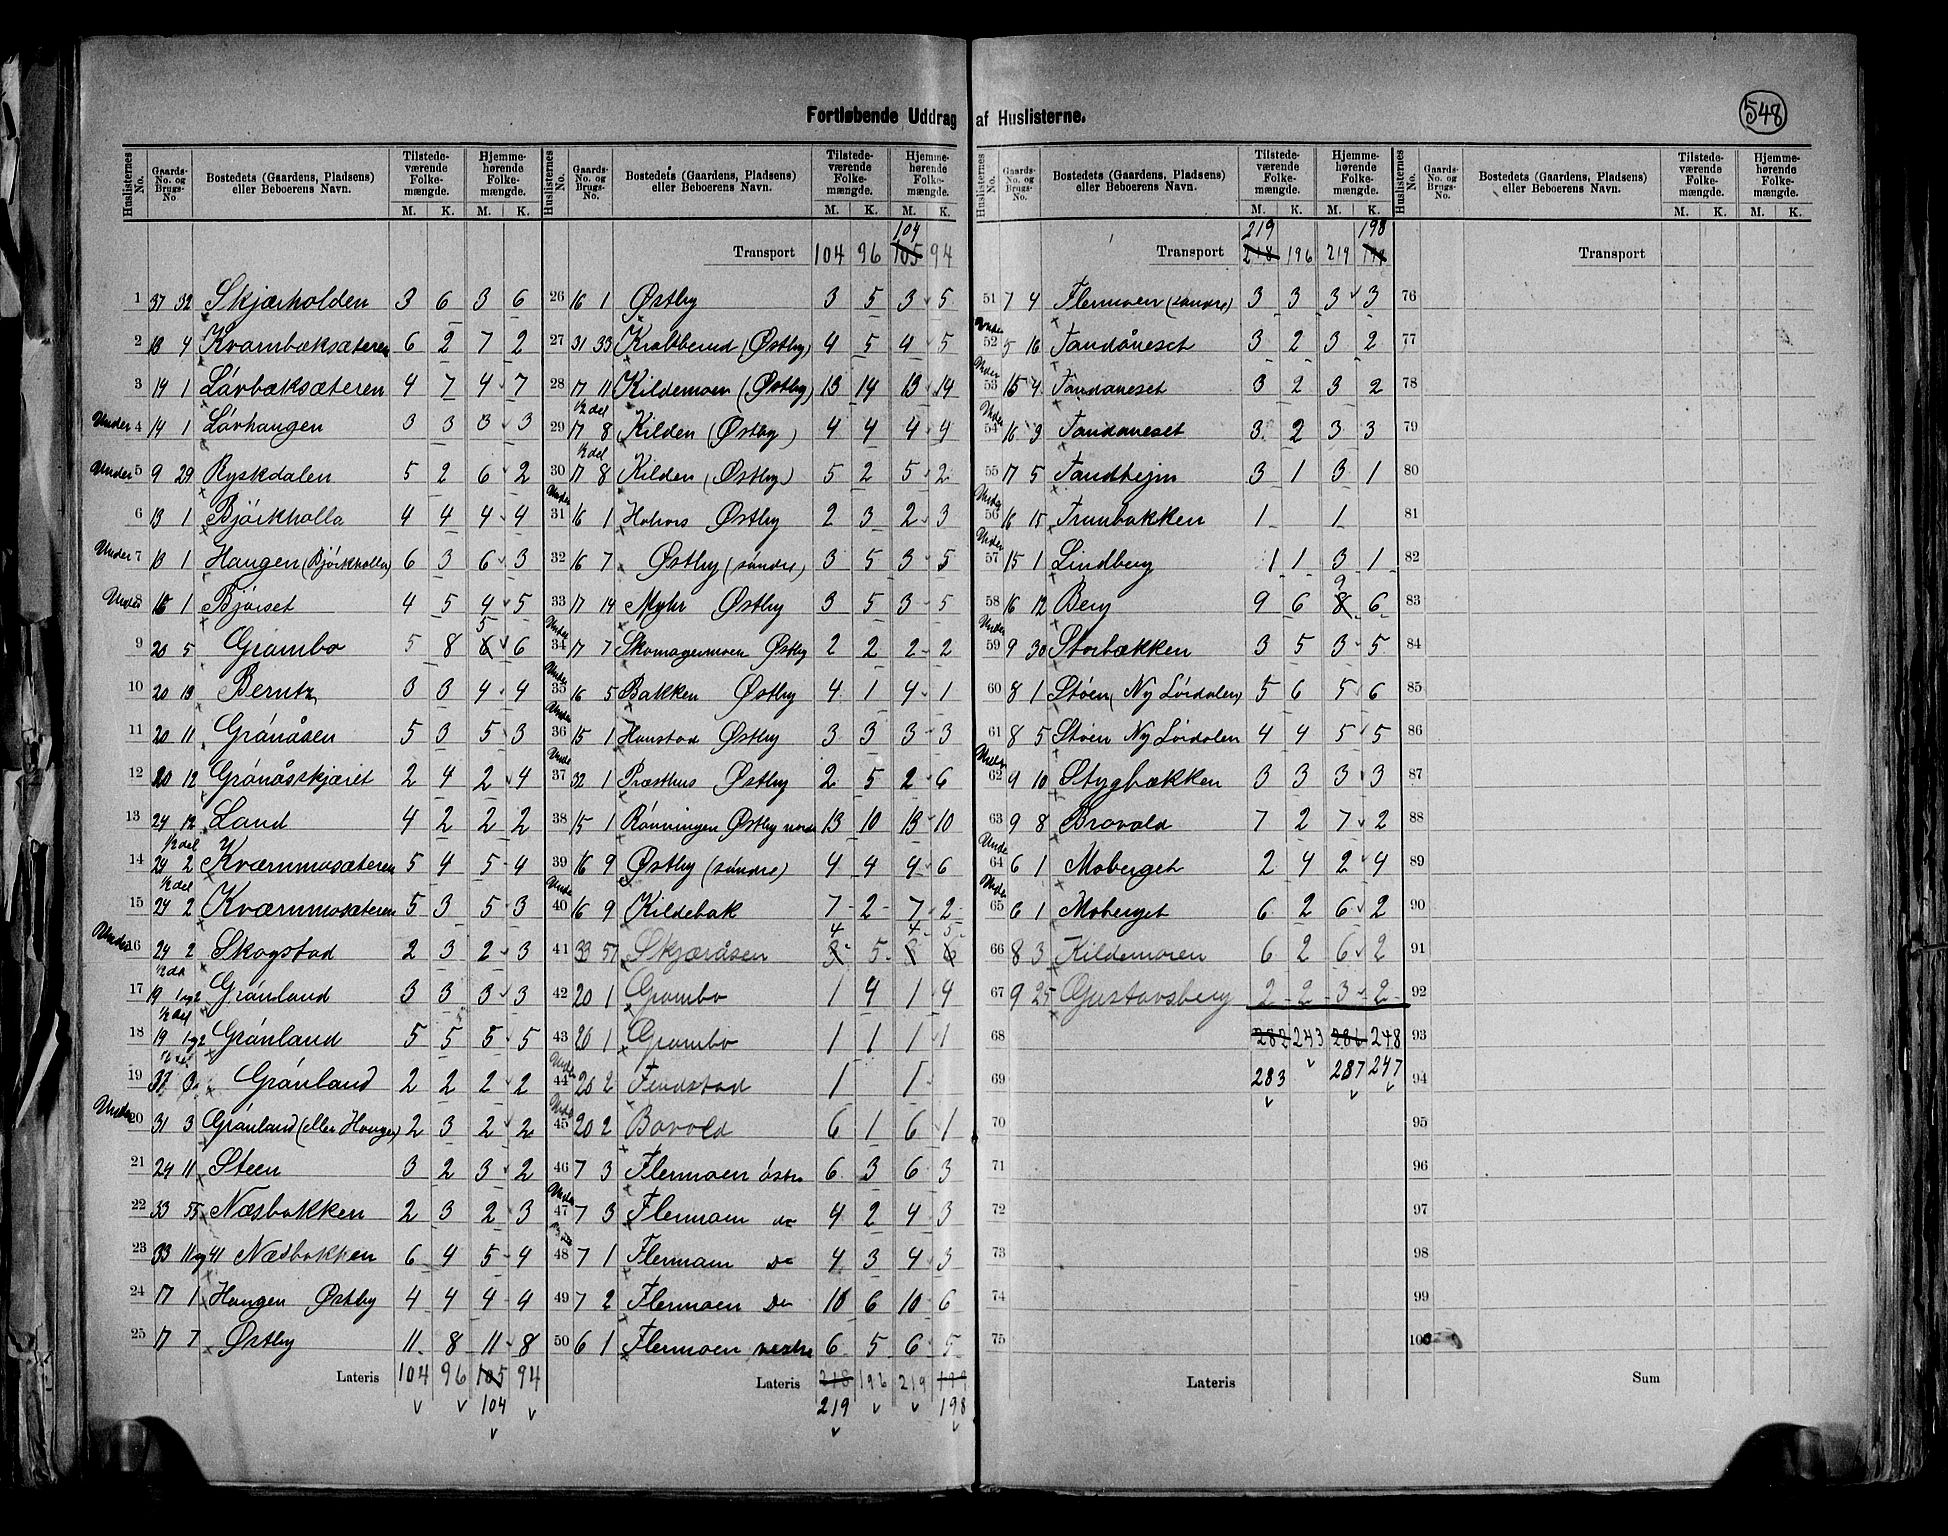 Fortløbende Uddrag af Huslisterne.
548
Huslisternes No. Gaards-No. og Brugs-No Bostedets (Gaardens, Pladsens) eller Beboerens Navn. Tilstedeværende Folkemængde. M. K. Hjemmehørende Folkemængde. M. K.
1 37 32 Skjærholden 3 6 3 6
2 13 4 Kvambæksæteren 6 2 7 2
3 14 1 Lövbæksæteren 4 7 4 7
Under 4 14 1 Lövhaugen 3 3 3 3
Under 5 9 29 Ryskdalen 5 2 6 2
6 13 1 Björkholla 4 4 4 4
Under 7 13 1 Haugen (Björkholla) 6 3 6 3
Under 8 16 1 Björset 4 5 4 5
9 20 5 Grambo 5 8 6 5 6
10 20 13 Berntz 3 3 4 4
11 20 11 Grönåsen 5 3 5 3
12 20 12 Grönåsskjæret 2 4 2 4
13 24 12 Land 4 2 2 2
14 1/2 del 24 2 Kværnmosæteren 5 4 5 4
15 1/2 del 24 2 Kværnmosæteren 5 3 5 3
Under 16 24 2 Skogstad 2 3 2 3
17 1/2 del 19 1 og 2 Grönland 3 3 3 3
18 1/2 del 19 1 og 2 Grönland 5 5 5 5
19 Grönland 2 2 2 2
Under 20 31 3 Grönland (eller Haugen) 2 3 2 2
21 24 11 Steen 3 2 3 2
22 33 55 Næsbakken 2 3 2 3
23 33 11 og 41 Næsbakken 6 4 5 4
24 17 1 Haugen Østby 4 4 4 4
25 17 7 Østby 11 8 11 8
Lateris 104 96 105 94
104
Huslisternes No. Gaards-No. og Brugs-No. Bostedets (Gaardens, Pladsens) eller Beboerens Navn. Tilstedeværende Folkemængde. M. K. Hjemmehørende Folkemængde. M. K.
104
Transport 104 96 105 94
26 16 1 Østby 3 5 3 5
27 31 33 Kraltberud (Østby) 4 5 4 5
28 17 11 Kildemoen (Østby) 13 14 13 14
29 1/2 del 17 8 Kilden (Østby) 4 4 4 4
30 1/2 del 17 8 Kilden (Østby) 5 2 5 2
Under 31 16 1 Østby 2 3 2 3
32 16 7 Østby (söndre) 3 5 3 5
33 17 14 Myhr Østby 3 5 3 5
Under 34 17 7 Skomagermoen Østby 2 2 2 2
Under 35 16 5 Bakken Østby 4 1 4 1
Under 36 15 1 Hanstad Østby 3 3 3 3
Under 37 32 1 Præsthus Østby 2 5 2 6
38 15 1 Rönningen Østby nordre 13 10 13 10
39 16 9 Østby (söndre) 4 4 4 6
Under 40 16 9 Kildebak 7 2 7 2
41 33 57 Skjæråsen 3 4 5 3 4 6 5
42 20 1 Grambo 1 4 1 4
43 20 1 Grambo 1 1 1 1
Under 44 20 2 Findstad 1 1
Under 45 20 2 Bovold 6 1 6 1
46 7 3 Flermoen östre 6 3 6 3
Under 47 7 3 Flermoen do 4 2 4 3
48 7 1 Flermoen Do 4 3 4 3
49 7 2 Flermoen Do 10 6 10 6
50 6 1 Flermoen vestre 6 5 6 5
Lateris 218 196 219 199
219 198
Huslisternes No. Gaards-No. og Brugs-No. Bostedets (Gaardens, Pladsens) eller Beboerens Navn. Tilstedeværende Folkemængde. M. K. Hjemmehørende Folkemængde. M. K.
219 198
Transport 218 196 219 199
51 7 4 Flermoen (söndre) 3 3 3 3
Under 52 5 16 Tandåneset 3 2 3 2
Under 53 15 4 Tandåneset 3 2 3 2
Under 54 16 3 Tandåneset 3 2 3 3
55 17 5 Tandhejm 3 1 3 1
Under 56 16 15 Trunbakken 1 1
Under 57 15 1 Lindberg 1 1 3 1
58 16 12 Berg 9 6 8 9 6
Under 59 9 30 Storbækken 3 5 3 5
60 8 1 Støen (Ny Lördalen) 5 6 5 6
61 8 5 Støen Ny Lördalen 4 4 5 5
Under 62 9 10 Stygbækken 3 3 3 3
63 9 8 Brovold 7 2 7 2
Under 64 6 1 Moberget 2 4 2 4
Under 65 6 1 Moberget 6 2 6 2
66 8 3 Kildemoren 6 2 6 2
67 9 25 Gustavsberg 2 2 3 2
68 282 243 286 248
69 283 287 247
70
71
72
73
74
75
Lateris
Huslisternes No. Gaards-No. og Brugs-No. Bostedets (Gaardens, Pladsens) eller Beboerens Navn. Tilstedeværende Folkemængde. M. K. Hjemmehørende Folkemængde. M. K.
Transport
76
77
78
79
80
81
82
83
84
85
86
87
88
89
90
91
92
93
94
95
96
97
98
99
100
Sum